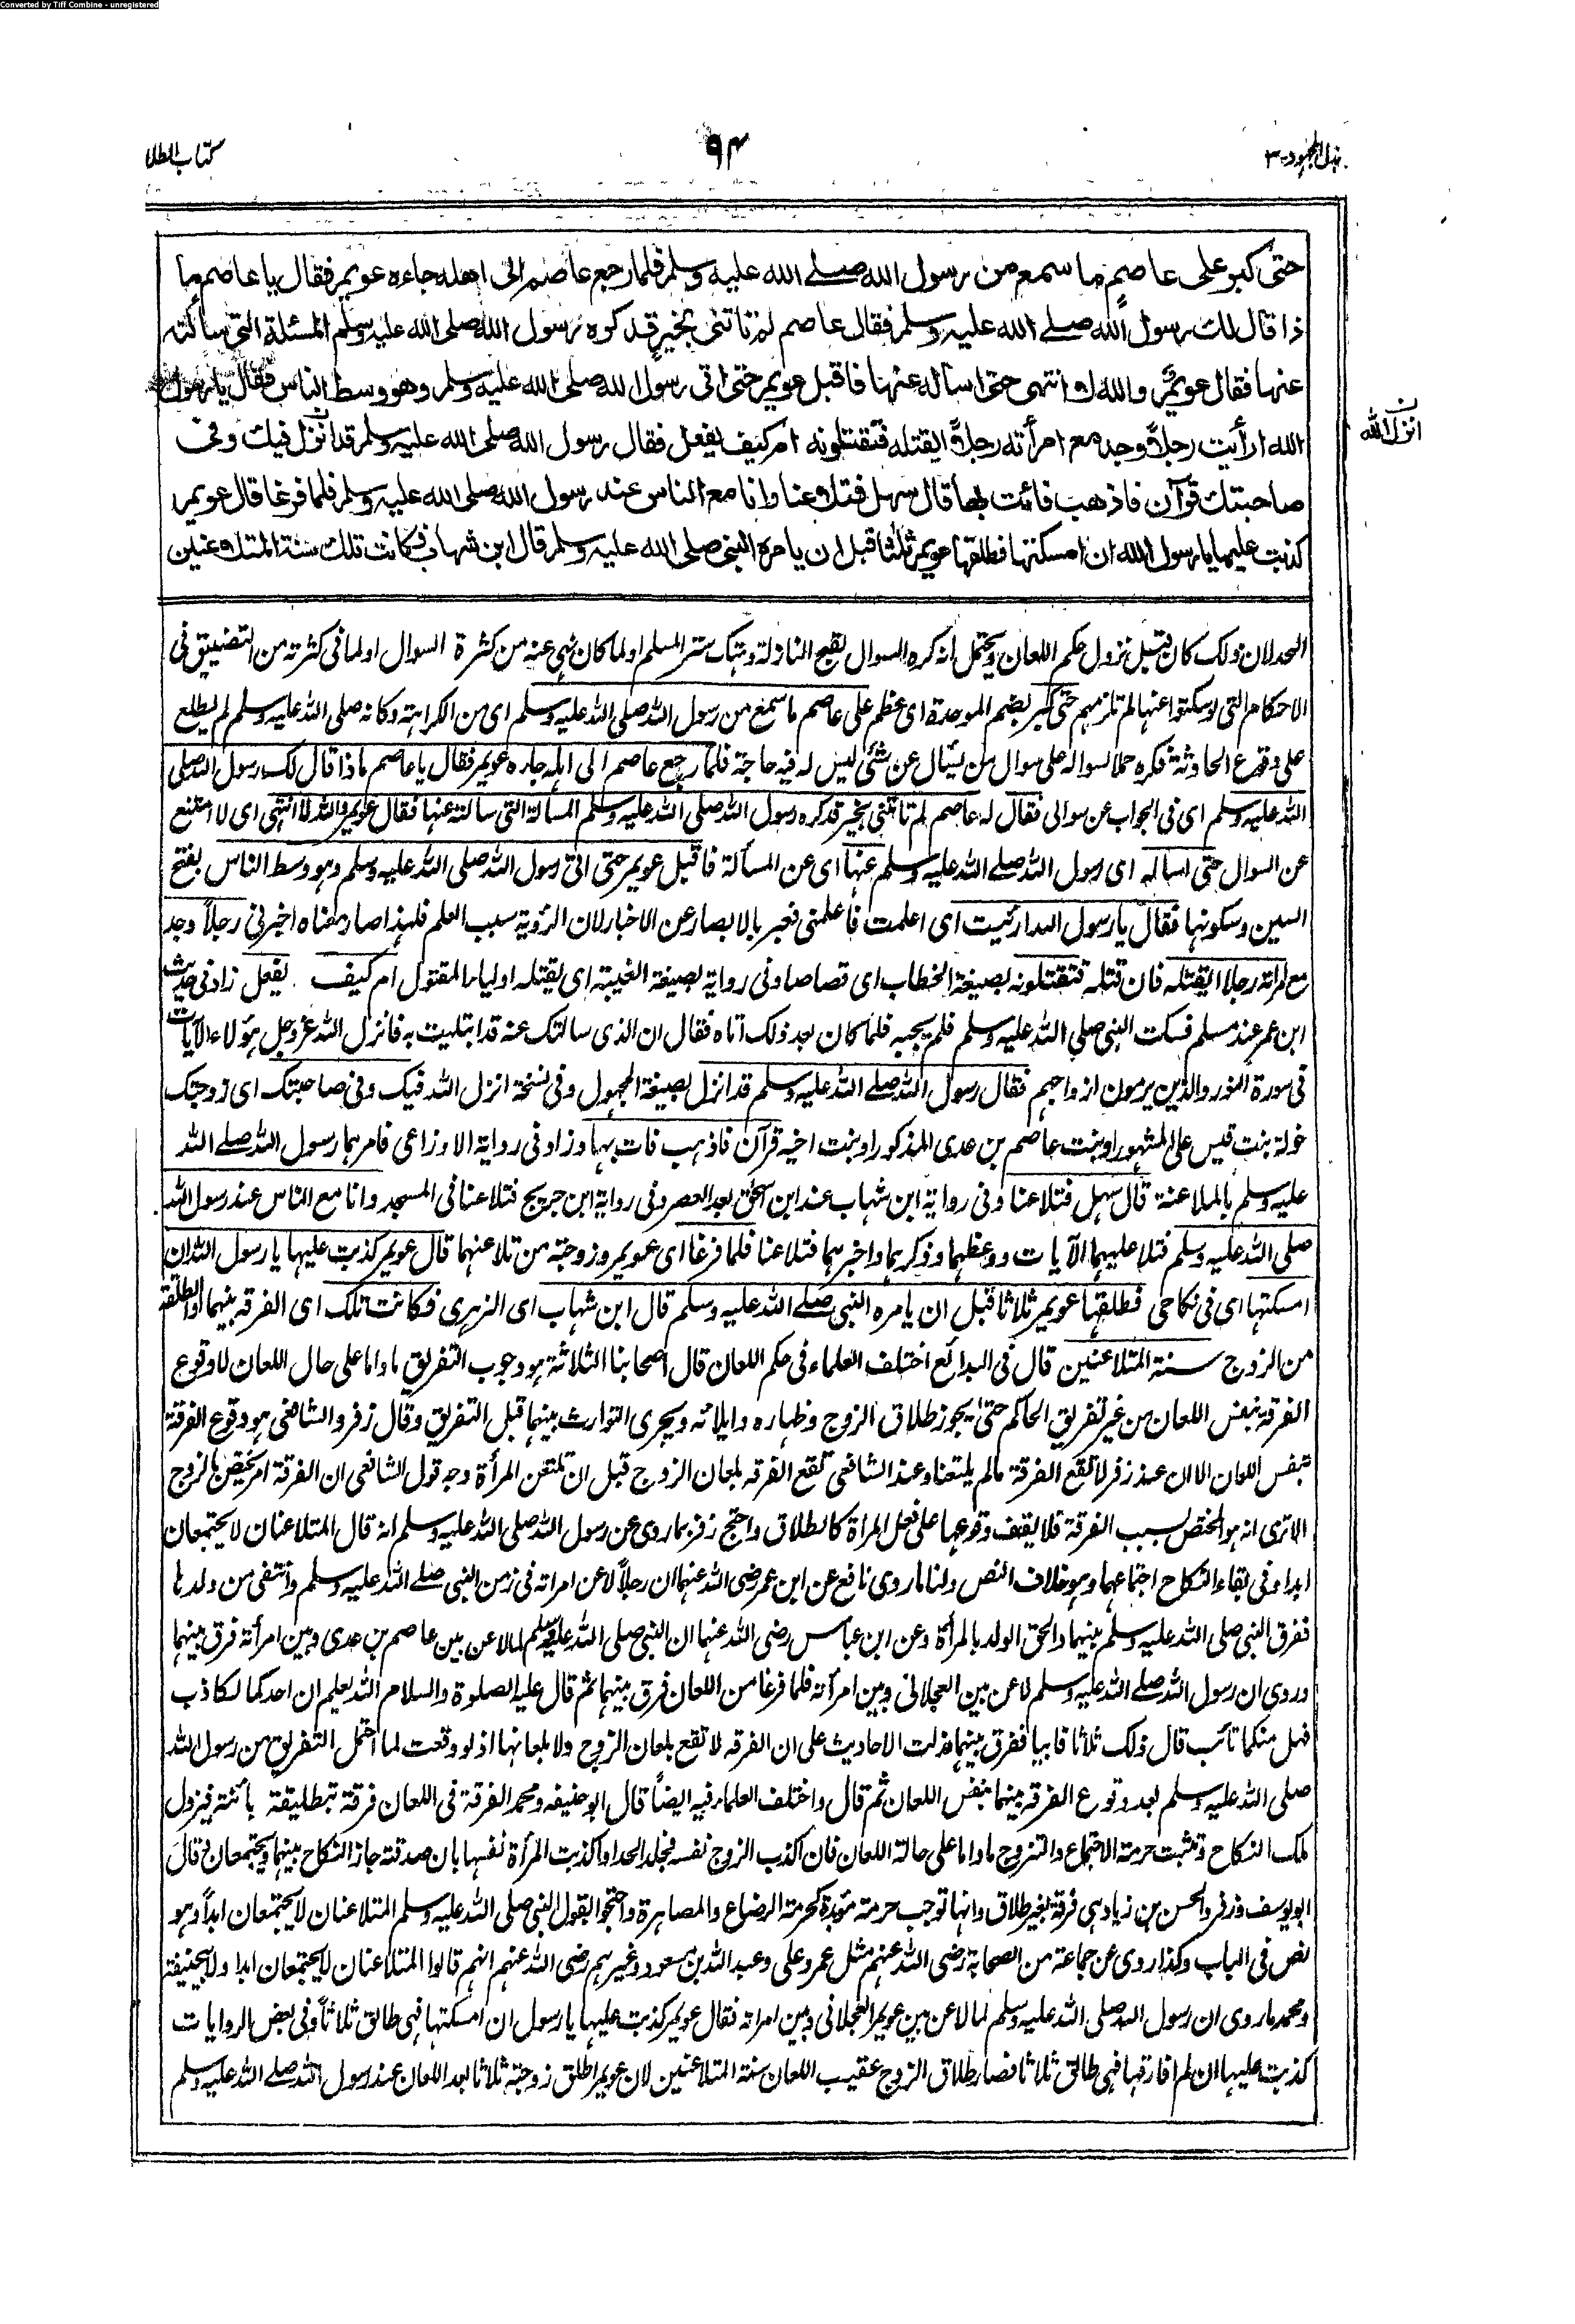 Converted by Tiff Combine - unregistered
بذل المجهود-٣
٩٣
كتاب الطلا
حتى كبر على عاصم ما سمع من رسول الله صلے الله عليه وسلم فلما رجع عاصم الى اهله جاءه عويمر فقال يا عاصم ما
ذا قال لك رسول الله صلے الله عليه وسلم فقال عاصم لم تاتنى بخير قد كره رسول الله صلى الله عليه وسلم المسئلة التى سألته
عنها فقال عويمر والله لا انتهى حتى اسأله عنها فاقبل عويمر حتى اتى رسول الله صلى الله عليه وسلم وهو وسط الناس فقال يا رسول
الله ارأيت رجلاً وجد مع امرأته رجلاً ايقتله فتقتلونه ام كيف يفعل فقال رسول الله صلى الله عليه وسلم قد انزل فيك وفى
صاحبتك قرآن فاذهب فائت بها قال سهل فتلاعنا وانا مع الناس عند رسول الله صلى الله عليه وسلم فلما فرغا قال عويمر
كذبت عليها يا رسول الله ان امسكتها فطلقها عويمر ثلثا قبل ان يامره النبى صلى الله عليه وسلم قال ابن شهاب فكانت تلك سنة المتلاعنين
ن
انزل الله
الحد لان ذلك كان قبل نزول حكم اللعان ويحتمل انه كره السوال لقبح النازلة وهتك ستر المسلم او لما كان نهى عنه من كثرة السوال او لما فى كثرته من التضييق فى
الاحكام التى لو سكتوا عنها لم تلزمهم حتى كبر بضم الموحدة اى عظم على عاصم ما سمع من رسول الله صلى الله عليه وسلم اى من الكراهته وكانه صلى الله عليه وسلم لم يطلع
على وقوع الحادثة فكره حملا لسواله على سوال من يسأل عن شئى ليس له فيه حاجة فلما رجع عاصم الى اهله جاءه عويمر فقال يا عاصم ماذا قال لك رسول الله صلى
الله عليه وسلم اى فى الجواب عن سوالى فقال له عاصم لم تاتنى بخير قد كره رسول الله صلى الله عليه وسلم المسألة التى سالته عنها فقال عويمر والله لا انتهى اى لا امتنع
عن السوال حتى اساله اى رسول الله صلے الله عليه وسلم عنها اى عن المسألة فاقبل عويمر حتى اتى رسول الله صلى الله عليه وسلم وهو وسط الناس بفتح
السين وسكونها فقال يا رسول الله ارئيت اى اعلمت فاعلمنى فعبر بالابصار عن الاخبار لان الرؤية سبب العلم فلهذا صار معناه اخبرنى رجلاً وجد
مع امراته رجلا ايقتله فان قتله فتقتلونه بصيغة الخطاب اى قصاصا وفى رواية بصيغة الغيبة اى يقتله اولياء المقتول ام كيف يفعل زاد فى حديث
ابن عمر عند مسلم فسكت النبى صلى الله عليه وسلم فلم يجبه فلما كان بعد ذلك اتاه فقال ان الذى سالتك عنه قد ابتليت به فانزل الله عزوجل هؤلاء الآيات
فى سورة النور والذين يرمون ازواجهم فقال رسول الله صلے الله عليه وسلم قد انزل بصيغة المجهول وفى نسخة انزل الله فيك وفى صاحبتك اى زوجتك
خولة بنت قيس على المشهور او بنت عاصم بن عدى المذكور او بنت اخيه قرآن فاذهب فات بها وزاد فى رواية الاوزاعى فامرهما رسول الله صلے الله
عليه وسلم بالملاعنة قال سهل فتلاعنا وفى رواية ابن شهاب عند ابن اسحٰق بعد العصر وفى رواية ابن جريج فتلاعنا فى المسجد وانا مع الناس عند رسول الله
صلى الله عليه وسلم فتلا عليهما الآيات ووعظهما وذكرهما واخبرهما فتلاعنا فلما فرغا اى عويمر وزوجته من تلاعنهما قال عويمر كذبت عليها يا رسول الله ان
امسكتها اى فى نكاحى فطلقها عويمر ثلاثا قبل ان يامره النبى صلے الله عليه وسلم قال ابن شهاب اى الزهرى فكانت تلك اى الفرقه بينهما او الطلقة
من الزوج سنة المتلاعنين قال فى البدائع اختلف العلماء فى حكم اللعان قال اصحابنا الثلاثة هو وجوب التفريق ماداما على حال اللعان لا وقوع
الفرقة بنفس اللعان من غير تفريق الحاكم حتىٰ يجوز طلاق الزوج وظهاره وايلائه ويجرى التوارث بينهما قبل التفريق وقال زفر والشافعى هو وقوع الفرقة
بنفس اللعان الا ان عند زفر لا تقع الفرقة مالم يلتعنا وعند الشافعى تقع الفرقه بلعان الزوج قبل ان تلتعن المرأة وجه قول الشافعى ان الفرقة امر يختص بالزوج
الاترى انه هو المختص بسبب الفرقة فلا يقف وقوعها على فعل المرأة كالطلاق واحتج زفر بما روى عن رسول الله صلى الله عليه وسلم انه قال المتلاعنان لا يجتمعان
ابدا وفى بقاء النكاح اجتماعهما وهو خلاف النص ولنا ما روى نافع عن ابن عمر رضى الله عنهما ان رجلاً لاعن امراته فى زمن النبى صلے الله عليه وسلم وانتفى من ولدها
ففرق النبى صلى الله عليه وسلم بينهما والحق الولد بالمرأة وعن ابن عباس رضى الله عنهما ان النبى صلى الله عليه وسلم لما لاعن بين عاصم بن عدى وبين امرأته فرق بينهما
وروى ان رسول الله صلے الله عليه وسلم لاعن بين العجلانى وبين امرأته فلما فرغا من اللعان فرق بينهما ثم قال عليه الصلوة والسلام الله يعلم ان احدكما لكاذب
فهل منكما تائب قال ذلك ثلاثا فابيا ففرق بينهما فدلت الاحاديث على ان الفرقه لا تقع بلعان الزوج ولا بلعانها اذ لو وقعت لما احتمل التفريق من رسول الله
صلى الله عليه وسلم بعد وقوع الفرقه بينهما بنفس اللعان ثم قال واختلف العلماء فيه ايضاً قال ابو حنيفه ومحمد الفرقة فى اللعان فرقة بتطليقة بائنته فيزول
ملك النكاح وتثبت حرمة الاجتماع والتزوج ماداما على حالة اللعان فان اكذب الزوج نفسه فجلد الحد او اكذبت المرأة نفسها بان صدقته جاز النكاح بينهما ويجتمعان وقال
ابو يوسف وزفر والحسن بن زياد هى فرقة بغير طلاق وانها توجب حرمة مؤبدة كحرمة الرضاع والمصاهرة واحتجوا بقول النبى صلى الله عليه وسلم المتلاعنان لا يجتمعان ابداً وهو
نص فى الباب وكذا روى عن جماعة من الصحابة رضى الله عنهم مثل عمر وعلى وعبد الله بن مسعود وغيرهم رضى الله عنهم انهم قالوا المتلاعنان لا يجتمعان ابدا ولابى حنيفة
ومحمد ما روى ان رسول الله صلى الله عليه وسلم لما لاعن بين عويمر العجلانى وبين امراته فقال عويمر كذبت عليها يا رسول ان امسكتها فهى طالق ثلاثاً وفى بعض الروايات
كذبت عليها ان لم افارقها فهى طالق ثلاثا فصار طلاق الزوج عقيب اللعان سنة المتلاعنين لان عويمرا طلق زوجته ثلاثا بعد اللعان عند رسول الله صلے الله عليه وسلم